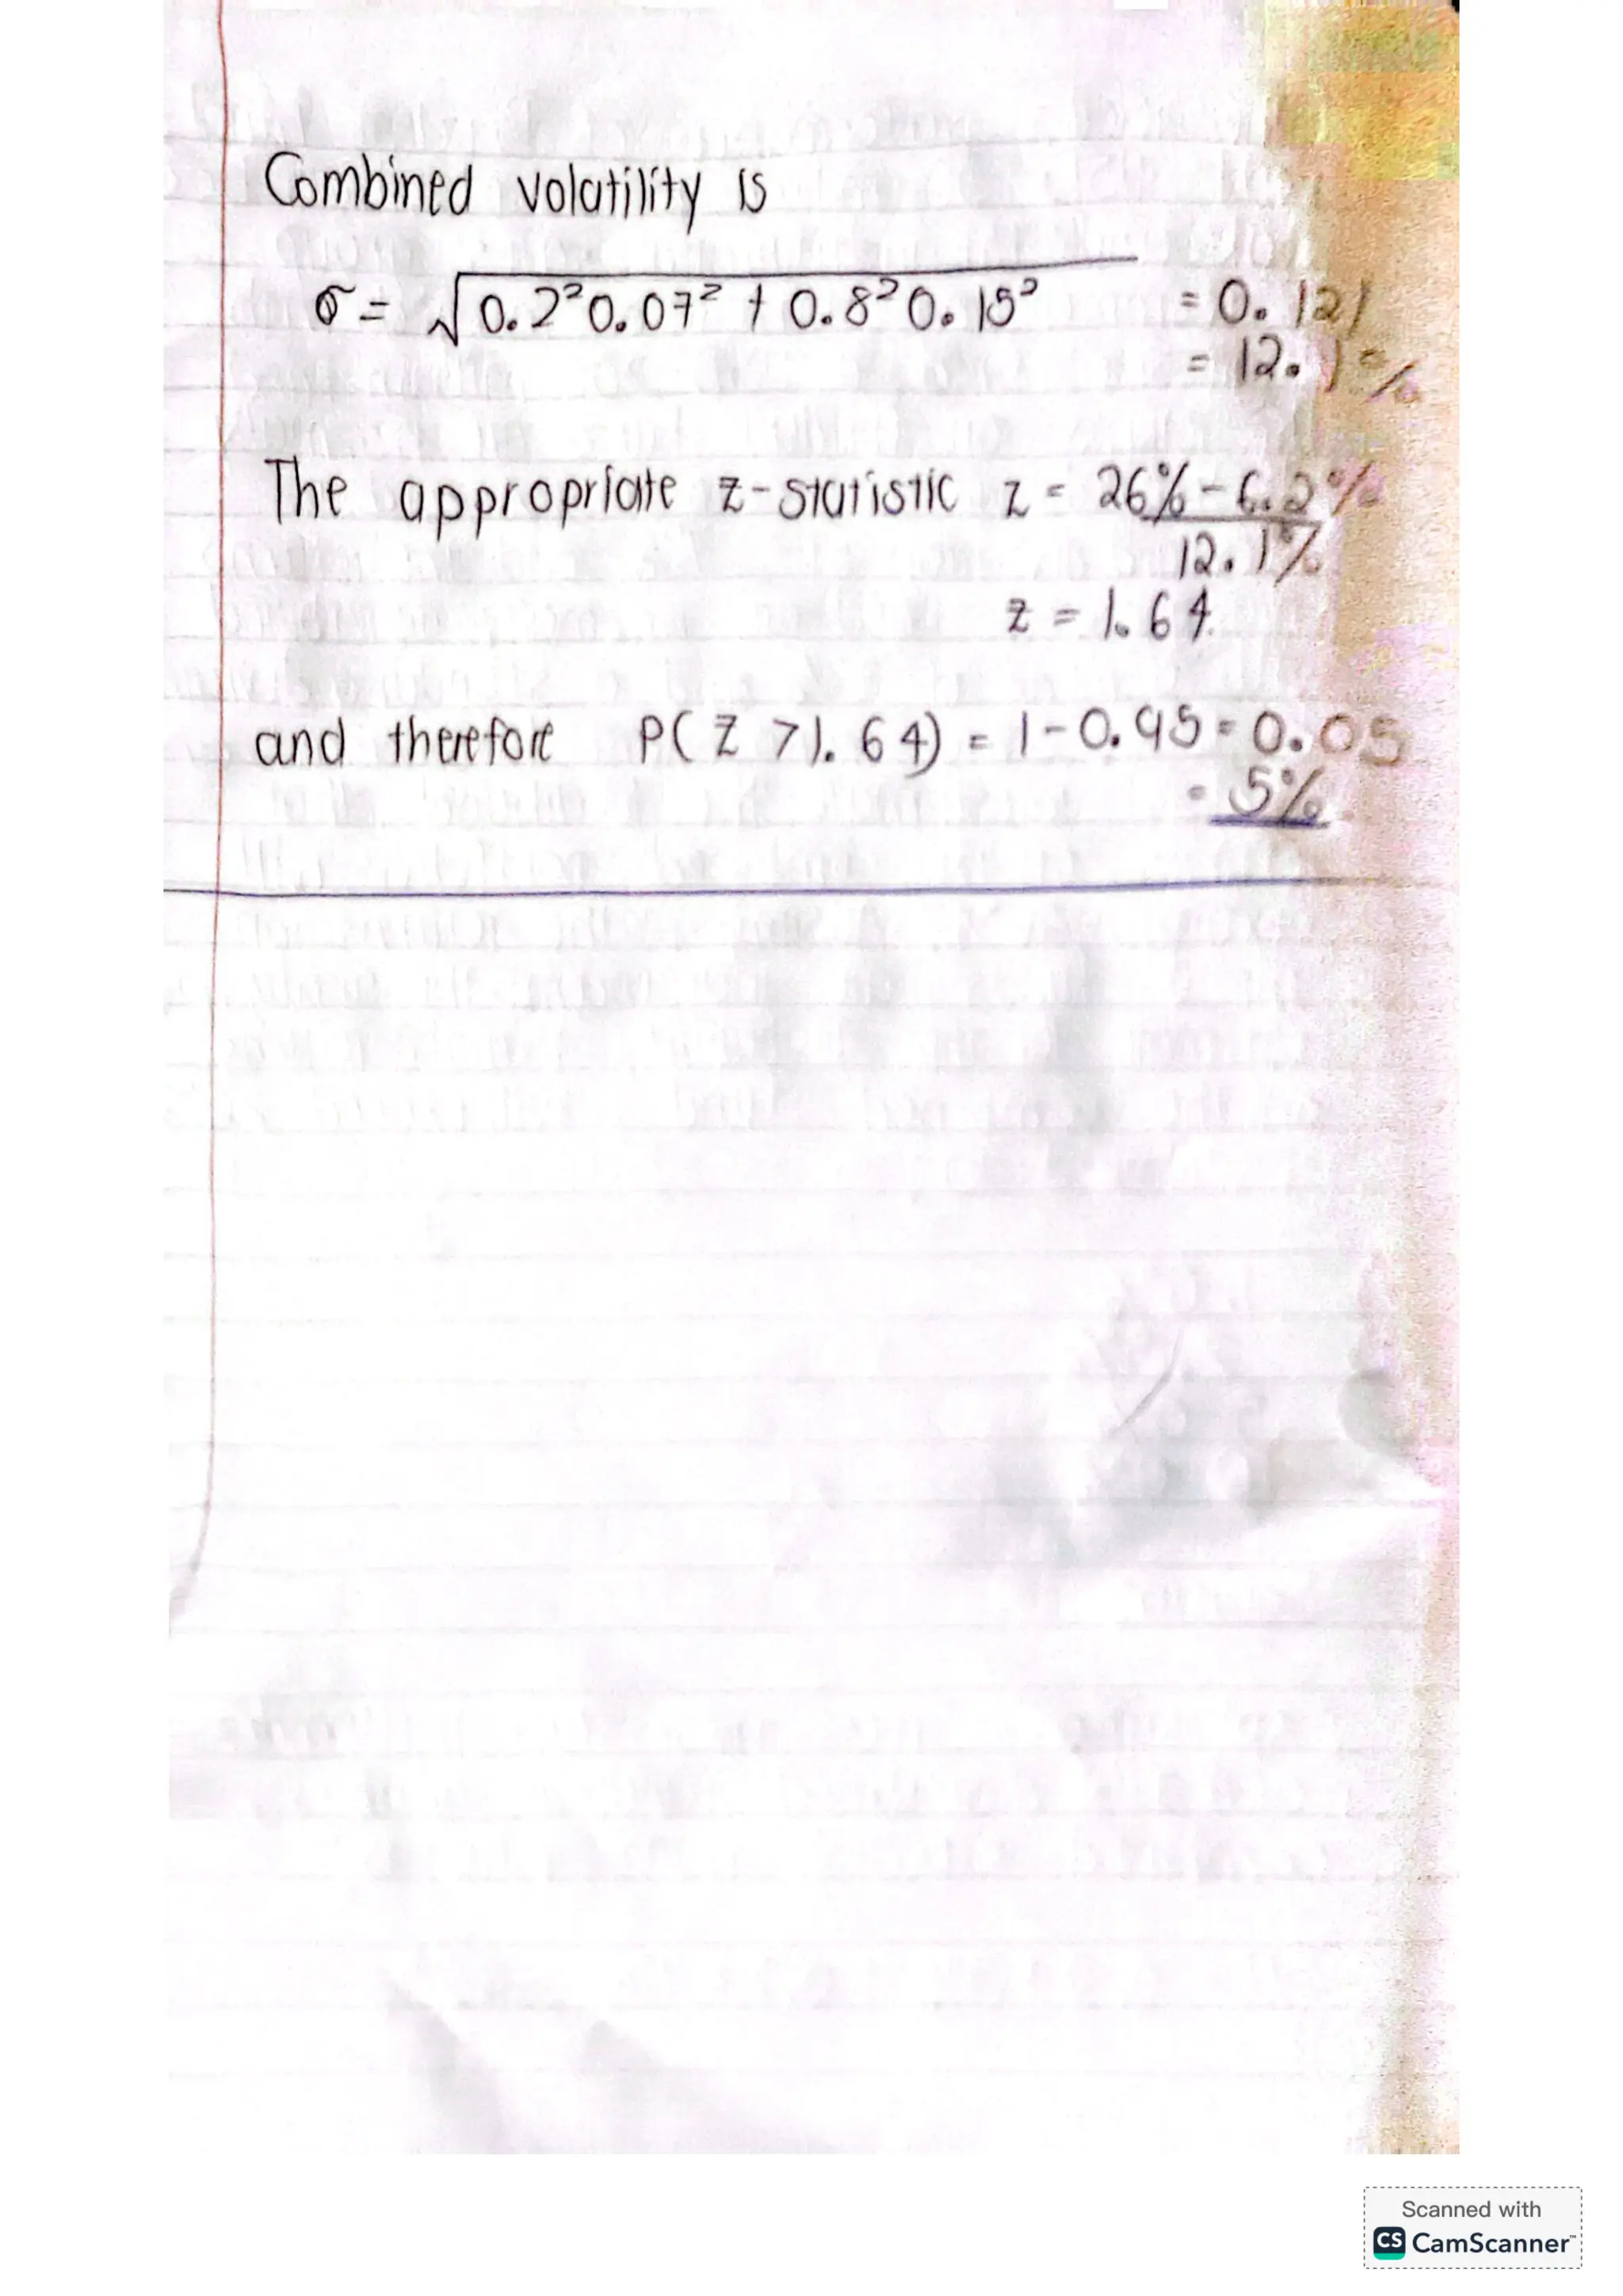 Combined volatility is
σ = √0.2²0.07² + 0.8²0.15² = 0.121
= 12.1%
The appropriate z-statistic z = 26% - 6.2%
12.1%
z = 1.64
and therefore P(Z > 1.64) = 1 - 0.95 = 0.05
= 5%
Scanned with
CS CamScanner™